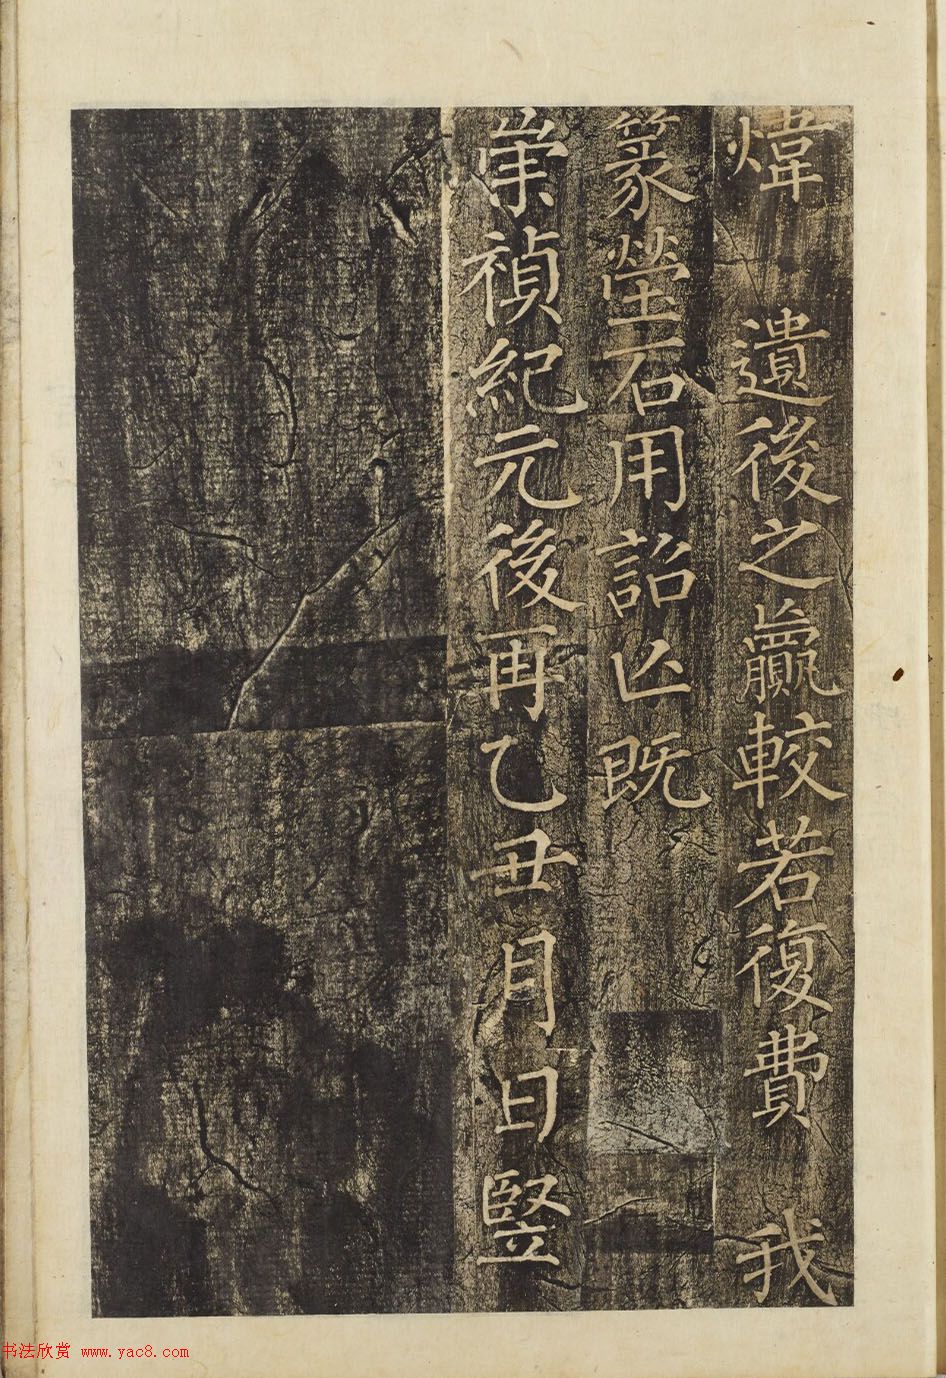 煒 遺後之贏較若復費 我
篆塋石用詔亾既
崇禎紀元後再乙丑月日竪
书法欣赏 www.yac8.com